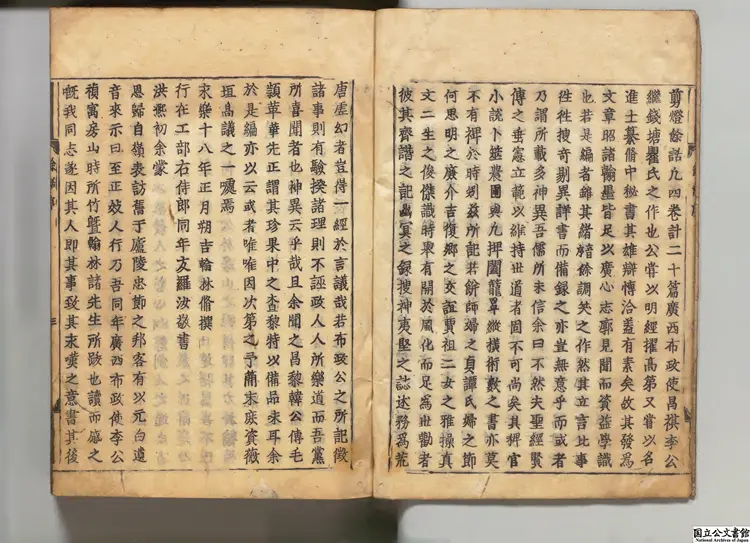 剪燈餘話凡四卷計二十篇廣西布政使昌祺李公
繼錢塘瞿氏之作也公嘗以明經擢高第又嘗以名
進士纂脩中秘書其雄辯博洽蓋有素矣故其發爲
文章昭諸翰墨皆足以廣心志郭見聞而資益學識
也若是編者雖其緒餘調笑之作然其立言比事
徃徃搜奇剔異詳書而備録之亦豈無意乎而或者
乃謂所載多神異吾儒所未信余曰不然夫聖經賢
傳之垂憲立範以維持世道者固不可尚矣其稗官
小說卜筮農圃與凡捭闔籠罩縱橫術數之書亦莫
不有裨於時矧玆所記若餅師婦之貞譚氏婦之節
何思明之廉介吉復鄉之交誼賈祖二女之雅操眞
文二生之俊傑識時擧有關於風化而足爲世勸者
彼其齊諧之記幽冥之録搜神夷堅之誌述務爲荒
唐虛幻者豈得一經於言議哉若布政公之所記徵
諸事則有驗揆諸理則不誣政人人所樂道而吾黨
所喜聞者也神異云乎哉且余聞之昌黎韓公傳毛
顈革華先正謂其珍果中之查黎特以備品味耳余
於是編亦以云或者唯唯因次第之予簡末庶資薇
垣高議之一噱焉
永樂十八年正月朔吉翰林脩撰
行在工部右侍郎同年友羅汝敬書
洪煕初余蒙
恩歸自嶺表訪舊于廬陵忠節之邦客有以元白遺
音來示曰至正妓人行乃吾同年廣西布政使李公
禎寓房山時所作曁翰林諸先生所跋也讀而感之
慨我同志遂因其人卽其事致其末嘆之意書其後
国立公文書館
National Archives of Japan